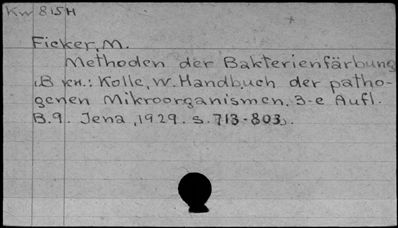 Kw 815H
Ficker, M.
Methoden der Bakterienfärbung
,В кн.: Kolle, W. Handbuch der patho-
genen Mikroorganismen. 3-e Aufl.
B.9. Jena, 1929. s. 713-803.